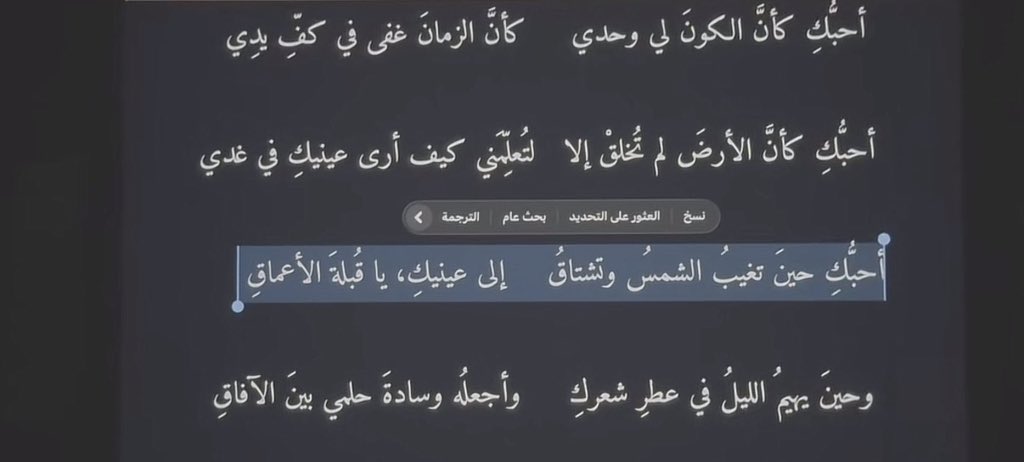 أحبُّكِ كأنَّ الكونَ لي وحدي كأنَّ الزمانَ غفى في كفِّ يدِي
أحبُّكِ كأنَّ الأرضَ لم تُخلقْ إلا لتُعلِّمَني كيف أرى عينيكِ في غدي
نسخ العثور على التحديد بحث عام الترجمة
أحبُّكِ حينَ تغيبُ الشمسُ وتشتاقُ إلى عينيكِ، يا قُبلةَ الأعماقِ
وحينَ يهيمُ الليلُ في عطرِ شعركِ وأجعلُه وسادةَ حلمي بينَ الآفاقِ